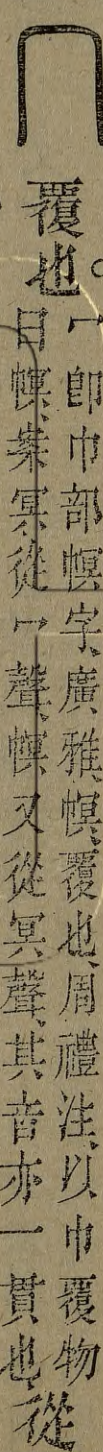 冖
覆也
冖即巾部幎字、廣雅、幎、覆也、周禮注、以巾覆物
曰幎、案冥、從冖聲、幎又從冥聲、其音亦一貫也、
從